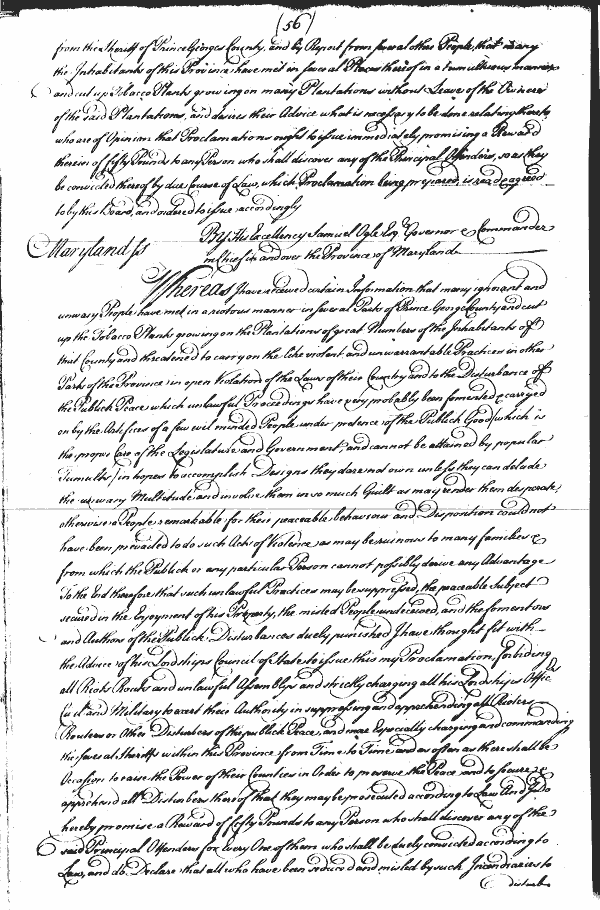 (56)
from the Sheriff of Prince Georges County, and by Report from several other People, that many
the Inhabitants of this Province have met in several Places thereof in a tumultuous manner
and cut up Tobacco Plants growing on many Plantations without Leave of the Owners
of the said Plantations, and desires their Advice what is necessary to be done relating thereto,
who are of Opinion that Proclamations ought to issue immediately promising a Reward
therein of fifty Pounds to any Person who shall discover any of the Principal Offenders, so as they
be convicted thereof by due Course of Law, which Proclamation being prepared, is read, agreed
to by this Board, and ordered to issue accordingly
Maryland ss
By His Excellency Samuel Ogle Esqr. Governor & Commander
in Chief in and over the Province of Maryland
Whereas I have received certain Information that many ignorant and
unwary People have met in a riotous manner in several Parts of Prince George County and cut
up the Tobacco Plants growing on the Plantations of great Numbers of the Inhabitants of
that County and threatened to carry on the like violent and unwarrantable Practices in other
Parts of the Province in open Violation of the Laws of their Country and to the Disturbance of
the Publick Peace which unlawful Proceedings have very probably been fomented & carryed
on by the Artifices of a few evil minded People under pretence of the Publick Good (which is
the proper Care of the Legislature and Government, and cannot be attained by popular
Tumults) in hopes to accomplish Designs they dare not own unless they can delude
the unwary Multitude and involve them in so much Guilt as may render them desperate,
otherwise a People remarkable for their peaceable behaviour and Disposition could not
have been prevailed to do such Acts of Violence as may be ruinous to many families &
from which the Publick or any particular Person cannot possibly derive any Advantage
To the End therefore that such unlawful Practices may be suppressed, the peaceable Subject
secured in the Enjoyment of his Property, the misled People undeceived, and the fomentors
and Authors of the Publick Disturbances duely punished I have thought fit with
the Advice of his Lordships Council of State to issue this my Proclamation, forbiding
all Riots Routs and unlawful Assemblys and strictly charging all his Lordships Officers
Civil and Military to exert their Authority in suppressing and apprehending all Rioters
Routers or Other Disturbers of the publick Peace, and more Especially charging and commanding
the several Sheriffs within this Province from Time to Time and as often as there shall be
Occasion to raise the Power of their Counties in Order to preserve the Peace and to secure &
apprehend all Disturbers thereof that they may be prosecuted according to Law And I do
hereby promise a Reward of fifty Pounds to any Person who shall discover any of the
said Principal Offenders for every One of them who shall be duely convicted according to
Law, and do Declare that all who have been seduced and misled by such Incendiaries to
disturb